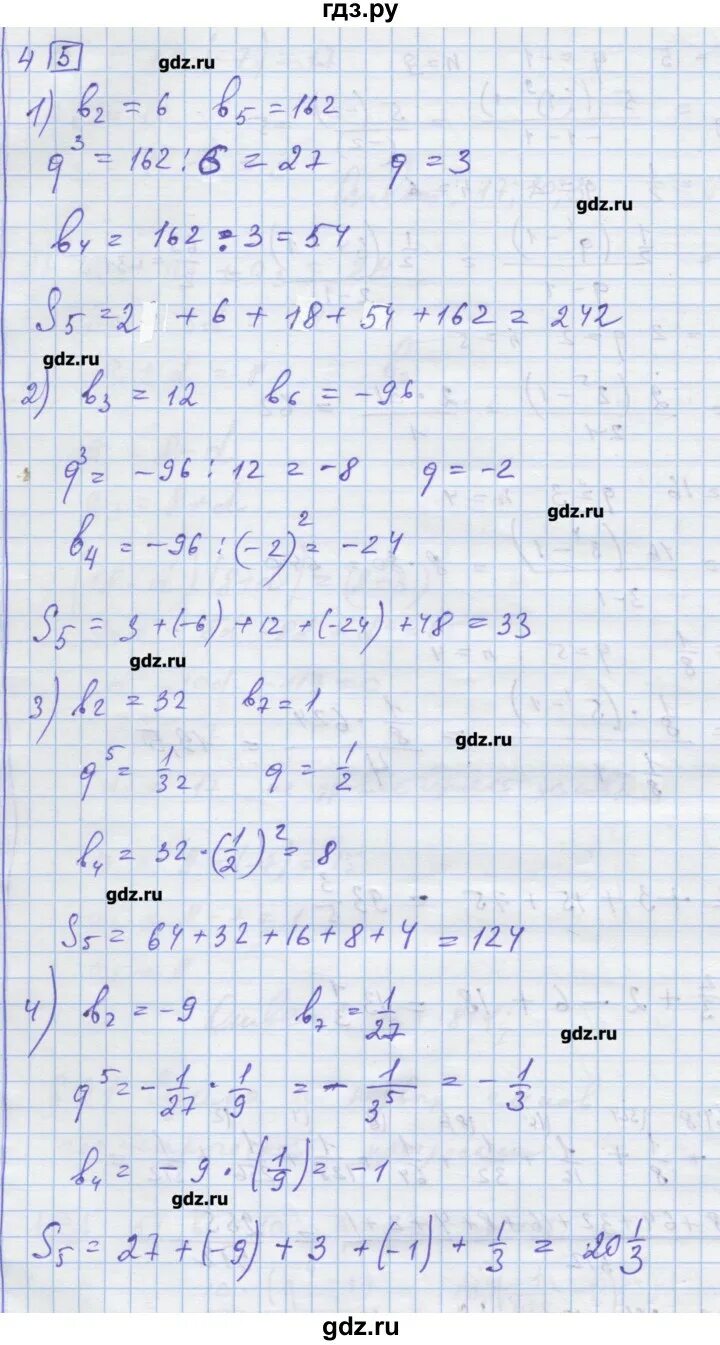 гдз.ру
4 5
gdz.ru
1) b₂ = 6 b₅ = 162
q³ = 162 : 6 = 27 q = 3
gdz.ru
b₄ = 162 : 3 = 54
S₅ = 2 + 6 + 18 + 54 + 162 = 242
gdz.ru
2) b₃ = 12 b₆ = -96
q³ = -96 : 12 = -8 q = -2
gdz.ru
b₄ = -96 : (-2)² = -24
S₅ = 3 + (-6) + 12 + (-24) + 48 = 33
gdz.ru
3) b₂ = 32 b₇ = 1
gdz.ru
q⁵ = 1/32 q = 1/2
b₄ = 32 · (1/2)² = 8
gdz.ru
S₅ = 64 + 32 + 16 + 8 + 4 = 124
4) b₂ = -9 b₇ = 1/27
gdz.ru
q⁵ = - 1/27 · 1/9 = - 1/3⁵ = - 1/3
b₄ = -9 · (1/9) = -1
gdz.ru
S₅ = 27 + (-9) + 3 + (-1) + 1/3 = 20 1/3
gdz.ru